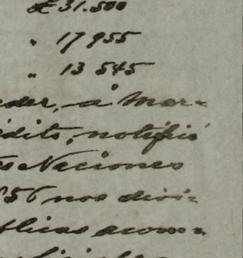 £ 31.500
" 17 955
" 13 545
eder, á Mar-
édito, notifiú
s Naciones
856 nos divi-
blicas acom-